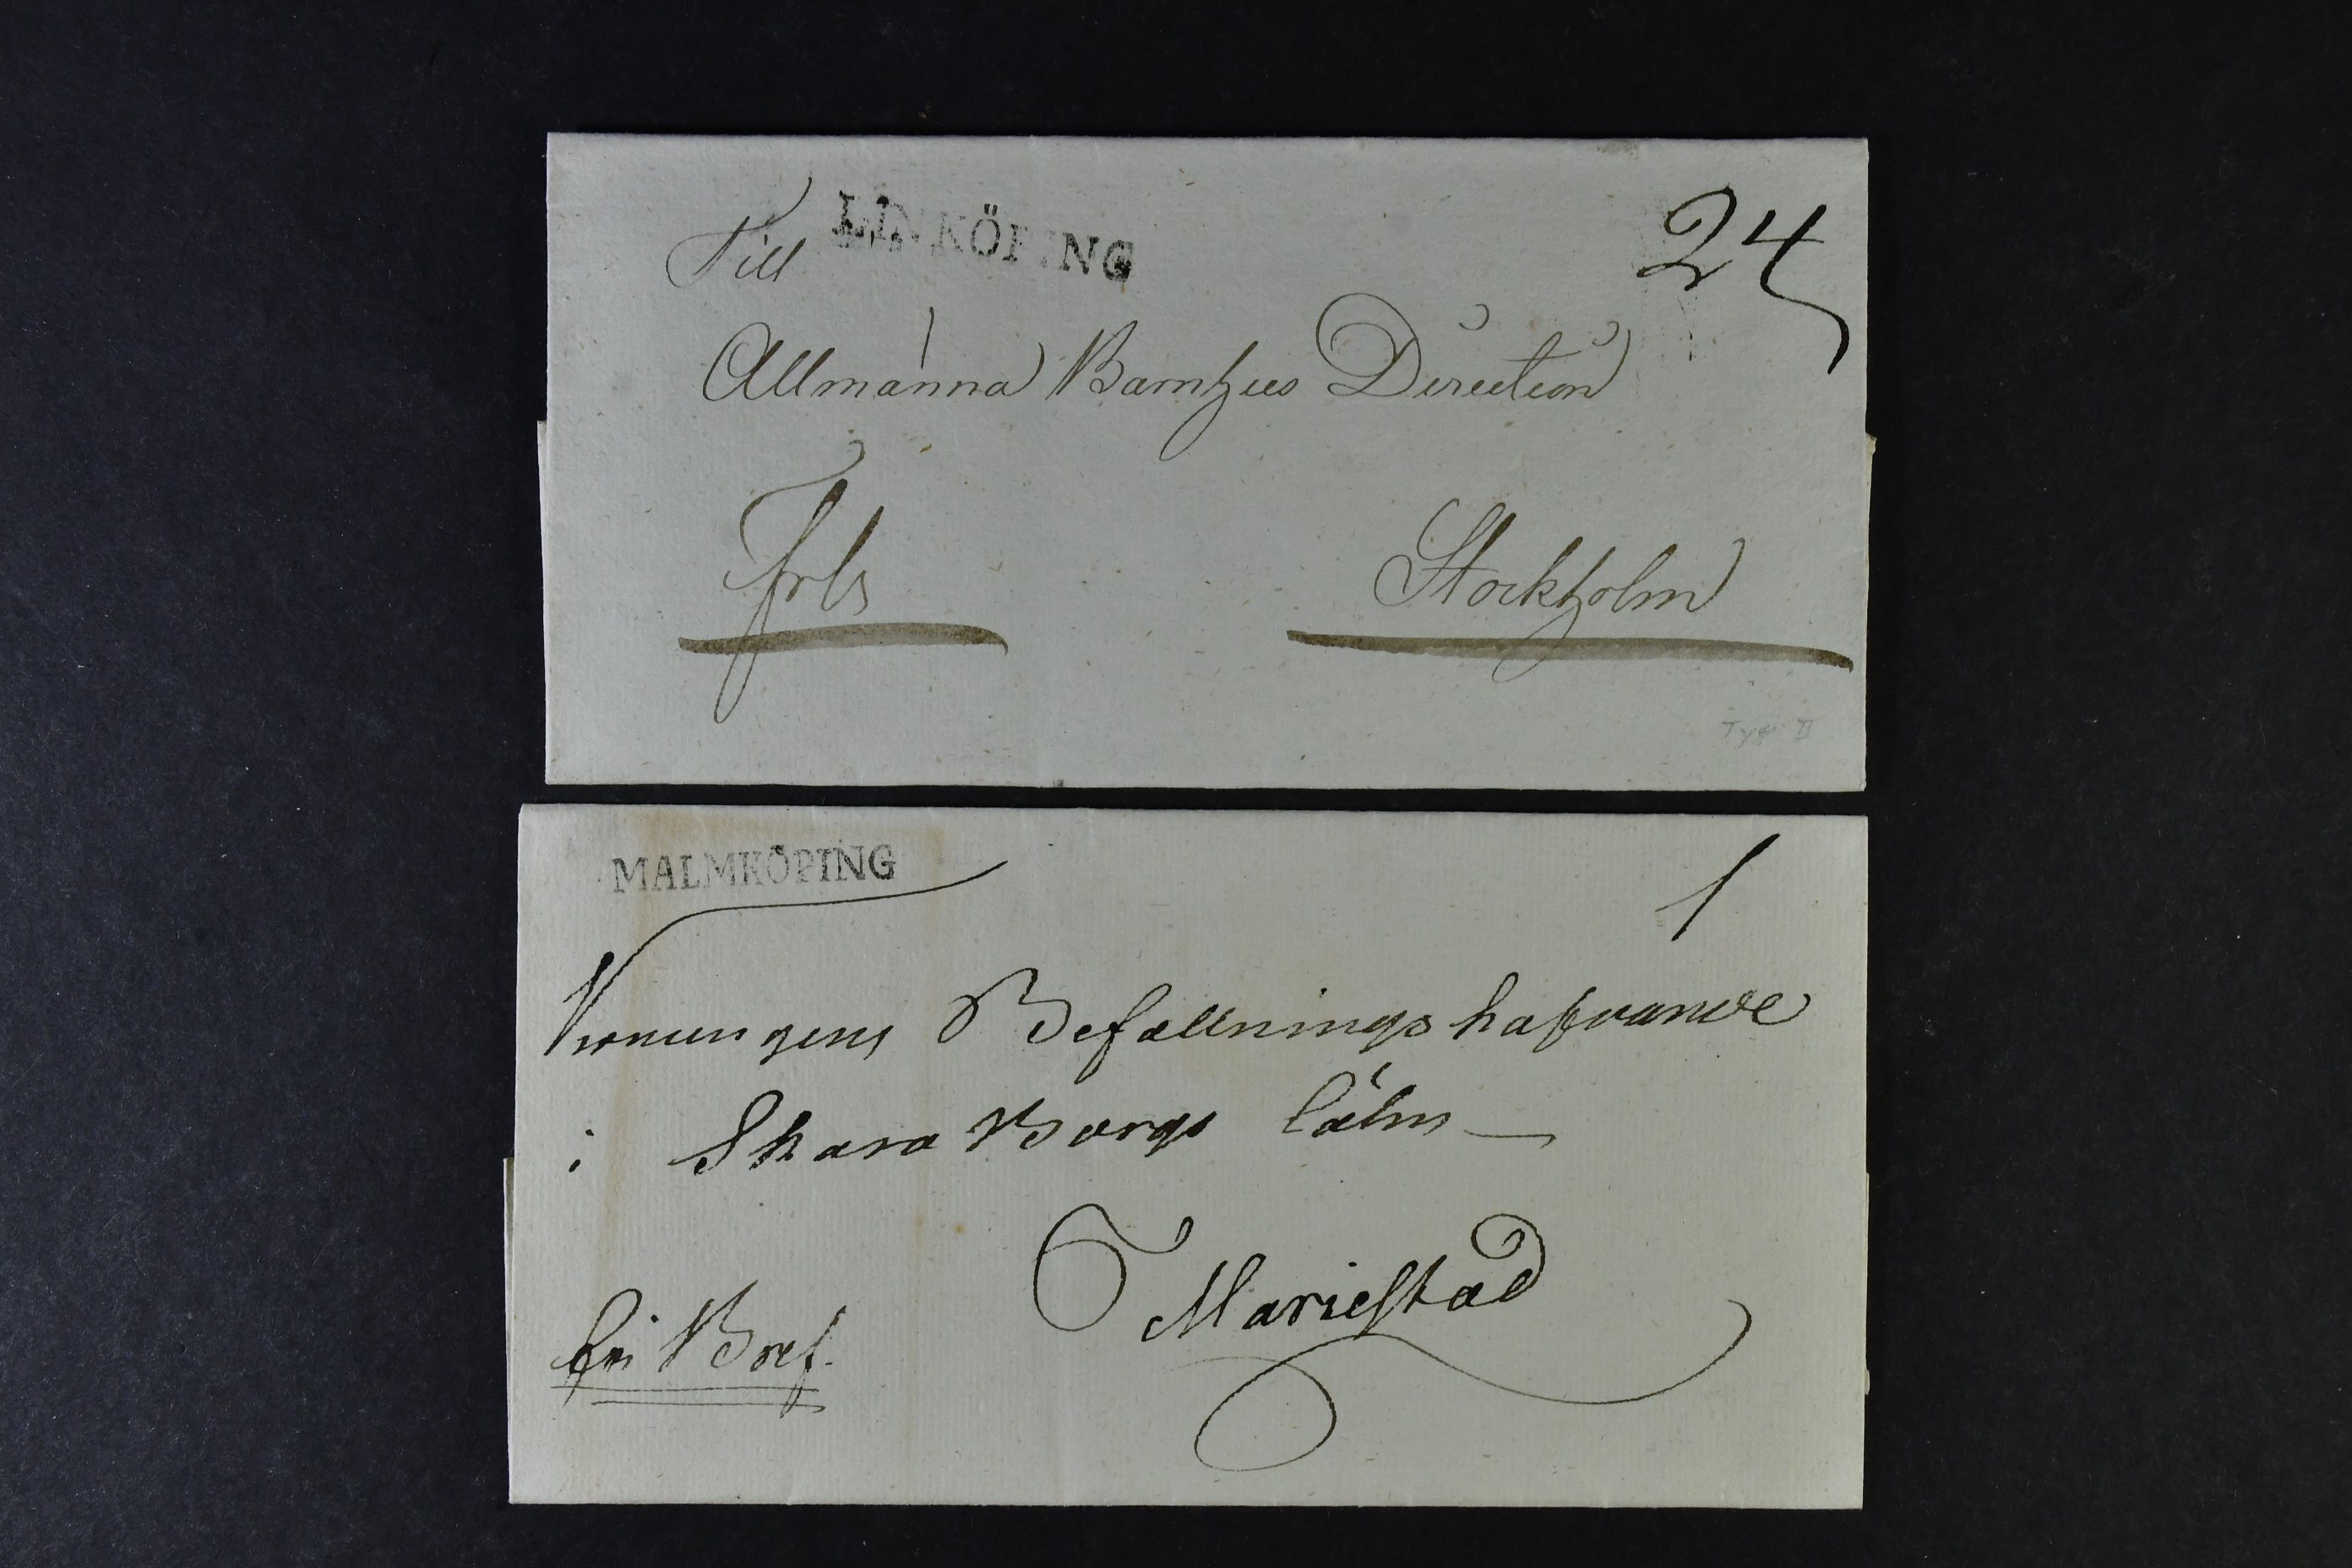 LINKÖPING
24
Till
Allmänna Barnhus Direction
frbr
Stockholm
Typ II
MALMKÖPING
1
Konungens Befallningshafvande
i Skara Borgs Lähn
Mariestad
fri Bref.